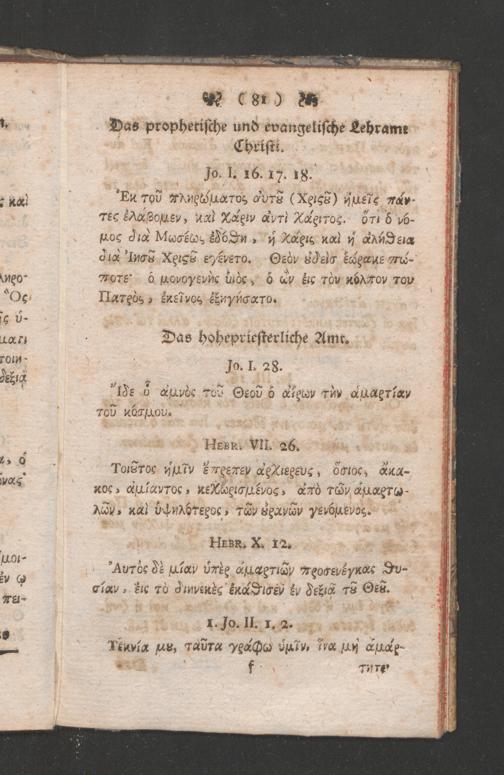 ( 81 )
Das prophetische und evangelische Lehramt
Christi.
Jo. I. 16. 17. 18.
Ἐκ τοῦ πληρώματος αὐτȣ͂ (Χριςȣ͂) ἡμεῖς πάν-
τες ἐλάβομεν, καὶ χάριν ἀντὶ χάριτος. ὅτι ὁ νό-
μος διὰ Μωσέως ἐδόθη, ἡ χάρις καὶ ἡ ἀλήθεια
διὰ Ἰησȣ͂ Χριςȣ͂ εγένετο. Θεὸν ȣδεὶς ἑώρακε πώ-
ποτε· ὁ μονογενὴς ὑιὸς, ὁ ὢν εἰς τὸν κόλπον του
Πατρὸς, ἐκεῖνος ἐξηγήσατο.
Das hohepriesterliche Amt.
Jo. I. 28.
Ἴδε ὁ ἀμνὸς τοῦ Θεοῦ ὁ αἴρων τὴν ἁμαρτίαν
τοῦ κόσμου.
Hebr. VII. 26.
Τοιοῦτος ἡμῖν ἔπρεπεν ἀρχιερευς, ὅσιος, ἄκα-
κος, ἀμίαντος, κεχωρισμένος, ἀπὸ τῶν ἁμαρτω-
λῶν, καὶ ὑψηλότερος, τῶν ȣρανῶν γενόμενος.
Hebr. X. 12.
Ἀυτὸς δὲ μίαν ὑπὲρ ἁμαρτιῶν προσενέγκας θυ-
σίαν, ἐις τὸ διηνεκὲς ἐκάθισεν ἐν δεξιᾷ τȣ͂ Θεȣ͂.
1. Jo. II. 1. 2.
Τεκνία μȣ, ταῦτα γράφω ὑμῖν, ἵνα μὴ ἁμάρ-
f τητε·